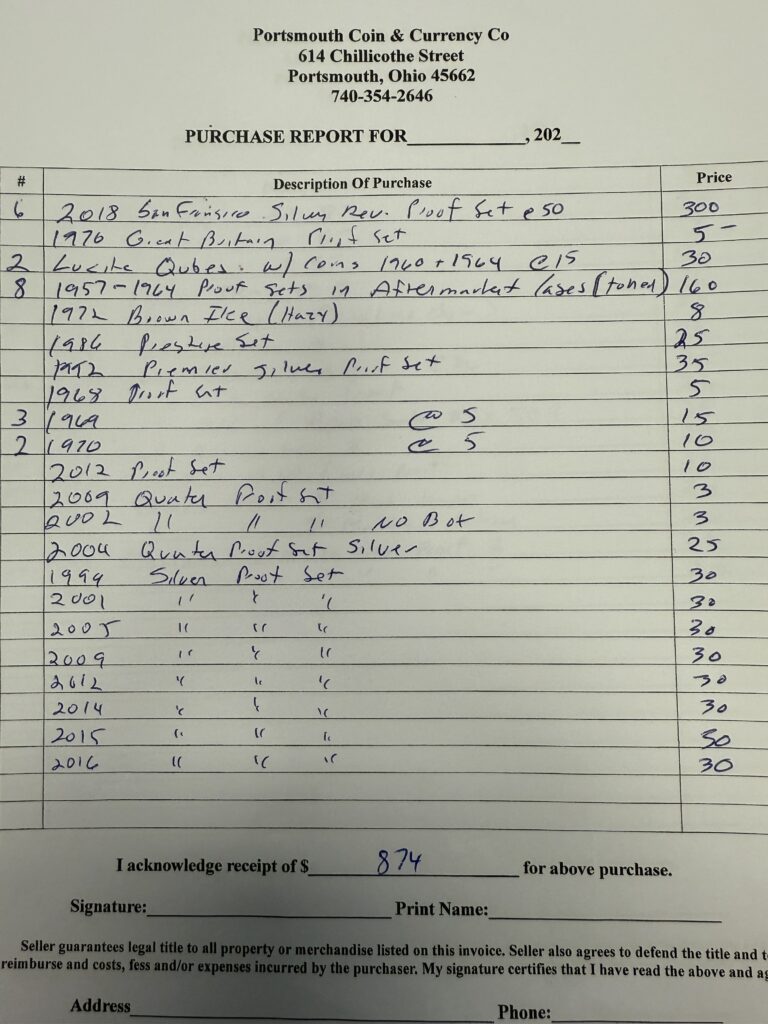 Portsmouth Coin & Currency Co
614 Chillicothe Street
Portsmouth, Ohio 45662
740-354-2646
PURCHASE REPORT FOR____________, 202__
# Description Of Purchase Price
6 2018 San Fransico Silver Rev. Proof Set @ 50 300
1970 Great Britain Proof Set 5-
2 Lucite Qubes w/ Coins 1960 + 1964 @ 15 30
8 1957-1964 Proof Sets in Aftermarket Cases (toned) 160
1972 Brown Ike (Hazy) 8
1986 Prestige Set 25
1992 Premier Silver Proof Set 35
1968 Proof Set 5
3 1969 @ 5 15
2 1970 @ 5 10
2012 Proof Set 10
2009 Quater Proof Set 3
2002 " " " NO Box 3
2004 Quater Proof Set Silver 25
1999 Silver Proof Set 30
2001 " " " 30
2005 " " " 30
2009 " " " 30
2012 " " " 30
2014 " " " 30
2015 " " " 30
2016 " " " 30
I acknowledge receipt of $ 874 for above purchase.
Signature:____________ Print Name:____________
Seller guarantees legal title to all property or merchandise listed on this invoice. Seller also agrees to defend the title and
reimburse and costs, fess and/or expenses incurred by the purchaser. My signature certifies that I have read the above and
Address____________ Phone:____________